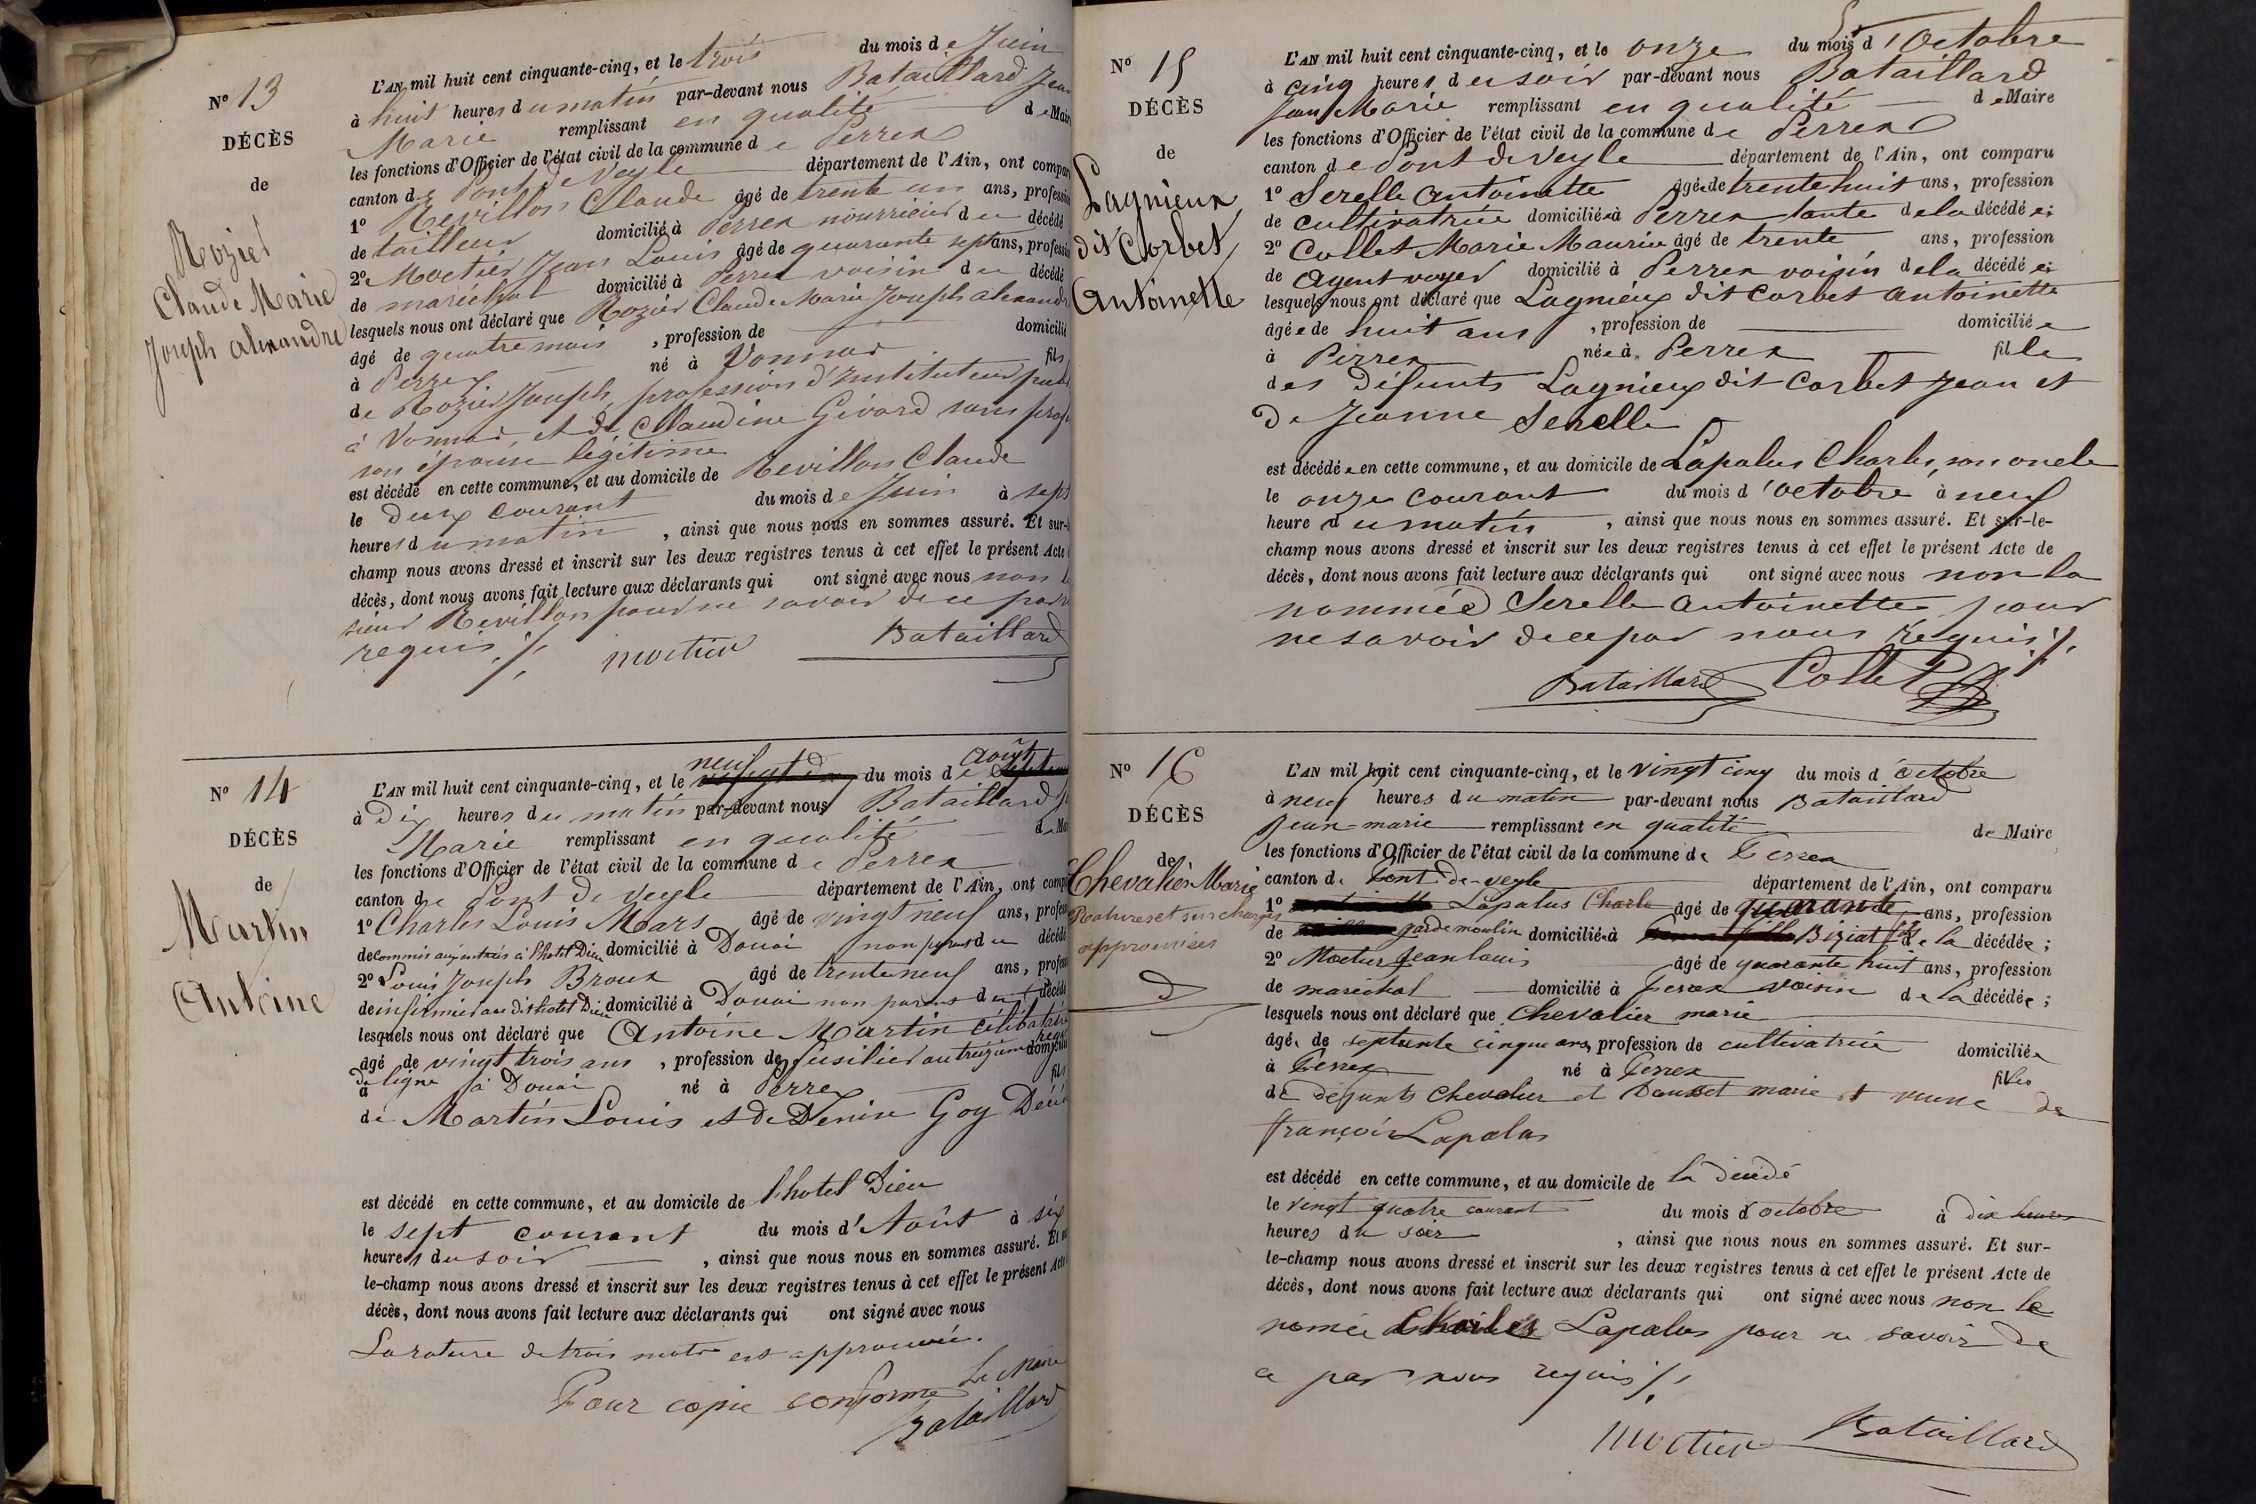 N° 13
DÉCÈS
de
Rozier
Claude Marie
Joseph alexandre
L'AN mil huit cent cinquante-cinq, et le trois du mois de Juin
à huit heures du matin par-devant nous Bataillard Jean
Marie remplissant en qualité de Maire
les fonctions d'Officier de l'état civil de la commune de Perrex
canton de Pont de Veyle département de l'Ain, ont comparu
1° Revillon Claude âgé de trente un ans, profession
de tailleur domicilié à Perrex nourricier du décédé
2° Moctier Jean Louis âgé de quarante sept ans, profession
de maréchal domicilié à Perrex voisin du décédé
lesquels nous ont déclaré que Rozier Claude Marie Joseph alexandre
âgé de quatre mois , profession de domicilié
à Perrex né à Vonnas fils
de Rozier Joseph, profession d'Instituteur
à Vonnas, et de Claudine Givord sans
son épouse légitime
est décédé en cette commune, et au domicile de Revillon Claude
le deux courant du mois de Juin à sept
heures du matin , ainsi que nous nous en sommes assuré. Et sur-
champ nous avons dressé et inscrit sur les deux registres tenus à cet effet le présent Acte
décès, dont nous avons fait lecture aux déclarants qui ont signé avec nous non
sieur Revillon pour ne savoir de ce par
requis ./.
moctier Bataillard
N° 14
DÉCÈS
de
Martin
Antoine
neuf Août
L'AN mil huit cent cinquante-cinq, et le du mois de
à Dix heures du matin par-devant nous Bataillard
Marie remplissant en qualité de
les fonctions d'Officier de l'état civil de la commune de Perrex
canton de Pont de Veyle département de l'Ain, ont
1° Charles Louis Mars âgé de vingt neuf ans,
de commis aux entrées à l'hotel Dieu domicilié à Douai non parent du décédé
2° Louis Joseph Broux âgé de trente neuf ans,
de infirmier au dit hotel Dieu domicilié à Douai non parent du décédé
lesquels nous ont déclaré que Antoine Martin célibataire
âgé de vingt trois ans , profession de fusilier au treizième
de ligne à Douai né à Perrex fils
de Martin Louis et de Denise Goy
est décédé en cette commune, et au domicile de l'hotel Dieu
le sept courant du mois d'Août à six
heures du soir , ainsi que nous nous en sommes assuré. Et
le-champ nous avons dressé et inscrit sur les deux registres tenus à cet effet le présent Acte
décès, dont nous avons fait lecture aux déclarants qui ont signé avec nous
La rature de trois mots est approuvée.
Pour copie conforme Le Maire
Bataillard
N° 15
DÉCÈS
de
Lagnieux
dit Corbet
Antoinette
L'AN mil huit cent cinquante-cinq, et le onze du mois d'Octobre
à cinq heures du soir par-devant nous Bataillard
Jean Marie remplissant en qualité de Maire
les fonctions d'Officier de l'état civil de la commune de Perrex
canton de Pont de Veyle département de l'Ain, ont comparu
1° Serelle antoinette âgée de trente huit ans, profession
de cultivatrice domiciliée à Perrex tante de la décédée;
2° Collet Marie Maurice âgé de trente ans, profession
de Agent voyer domicilié à Perrex voisin de la décédée;
lesquels nous ont déclaré que Lagnieux dit Corbet antoinette
âgée de huit ans , profession de domiciliée
à Perrex née à Perrex fille
des défunts Lagnieux dit Corbet Jean et
De Jeanne Serelle
est décédée en cette commune, et au domicile de Lapalus Charles, son oncle
le onze courant du mois d'octobre à neuf
heure du matin , ainsi que nous nous en sommes assuré. Et sur-le-
champ nous avons dressé et inscrit sur les deux registres tenus à cet effet le présent Acte de
décès, dont nous avons fait lecture aux déclarants qui ont signé avec nous non la
nommée Serelle antoinette pour
ne savoir de ce par nous requis ./.
Bataillard Collet
N° 16
DÉCÈS
de
Chevalier Marie
Ratures et surcharges
approuvées
L'AN mil huit cent cinquante-cinq, et le vingt cinq du mois d'octobre
à neuf heures du matin par-devant nous Bataillard
Jean-marie remplissant en qualité de Maire
les fonctions d'Officier de l'état civil de la commune de Perrex
canton de Pont-de-veyle département de l'Ain, ont comparu
1° Lapalus Charle âgé de quarante ans, profession
de garde moulin domicilié à Biziat fils de la décédée;
2° Moctier Jean louis âgé de quarante huit ans, profession
de maréchal domicilié à Perrex voisin de la décédée;
lesquels nous ont déclaré que Chevalier marie
âgée de septante cinque ans, profession de cultivatrice domiciliée
à Perrex né à Perrex fille
de défunts Chevalier et marie et veuve de
françois Lapalus
est décédé en cette commune, et au domicile de la décédé
le vingt quatre courant du mois d'octobre à dix heures
heures du soir , ainsi que nous nous en sommes assuré. Et sur-
le-champ nous avons dressé et inscrit sur les deux registres tenus à cet effet le présent Acte de
décès, dont nous avons fait lecture aux déclarants qui ont signé avec nous non le
nomée Charles Lapalus pour ne savoir de
ce par nous requis ./.
moctier Bataillard